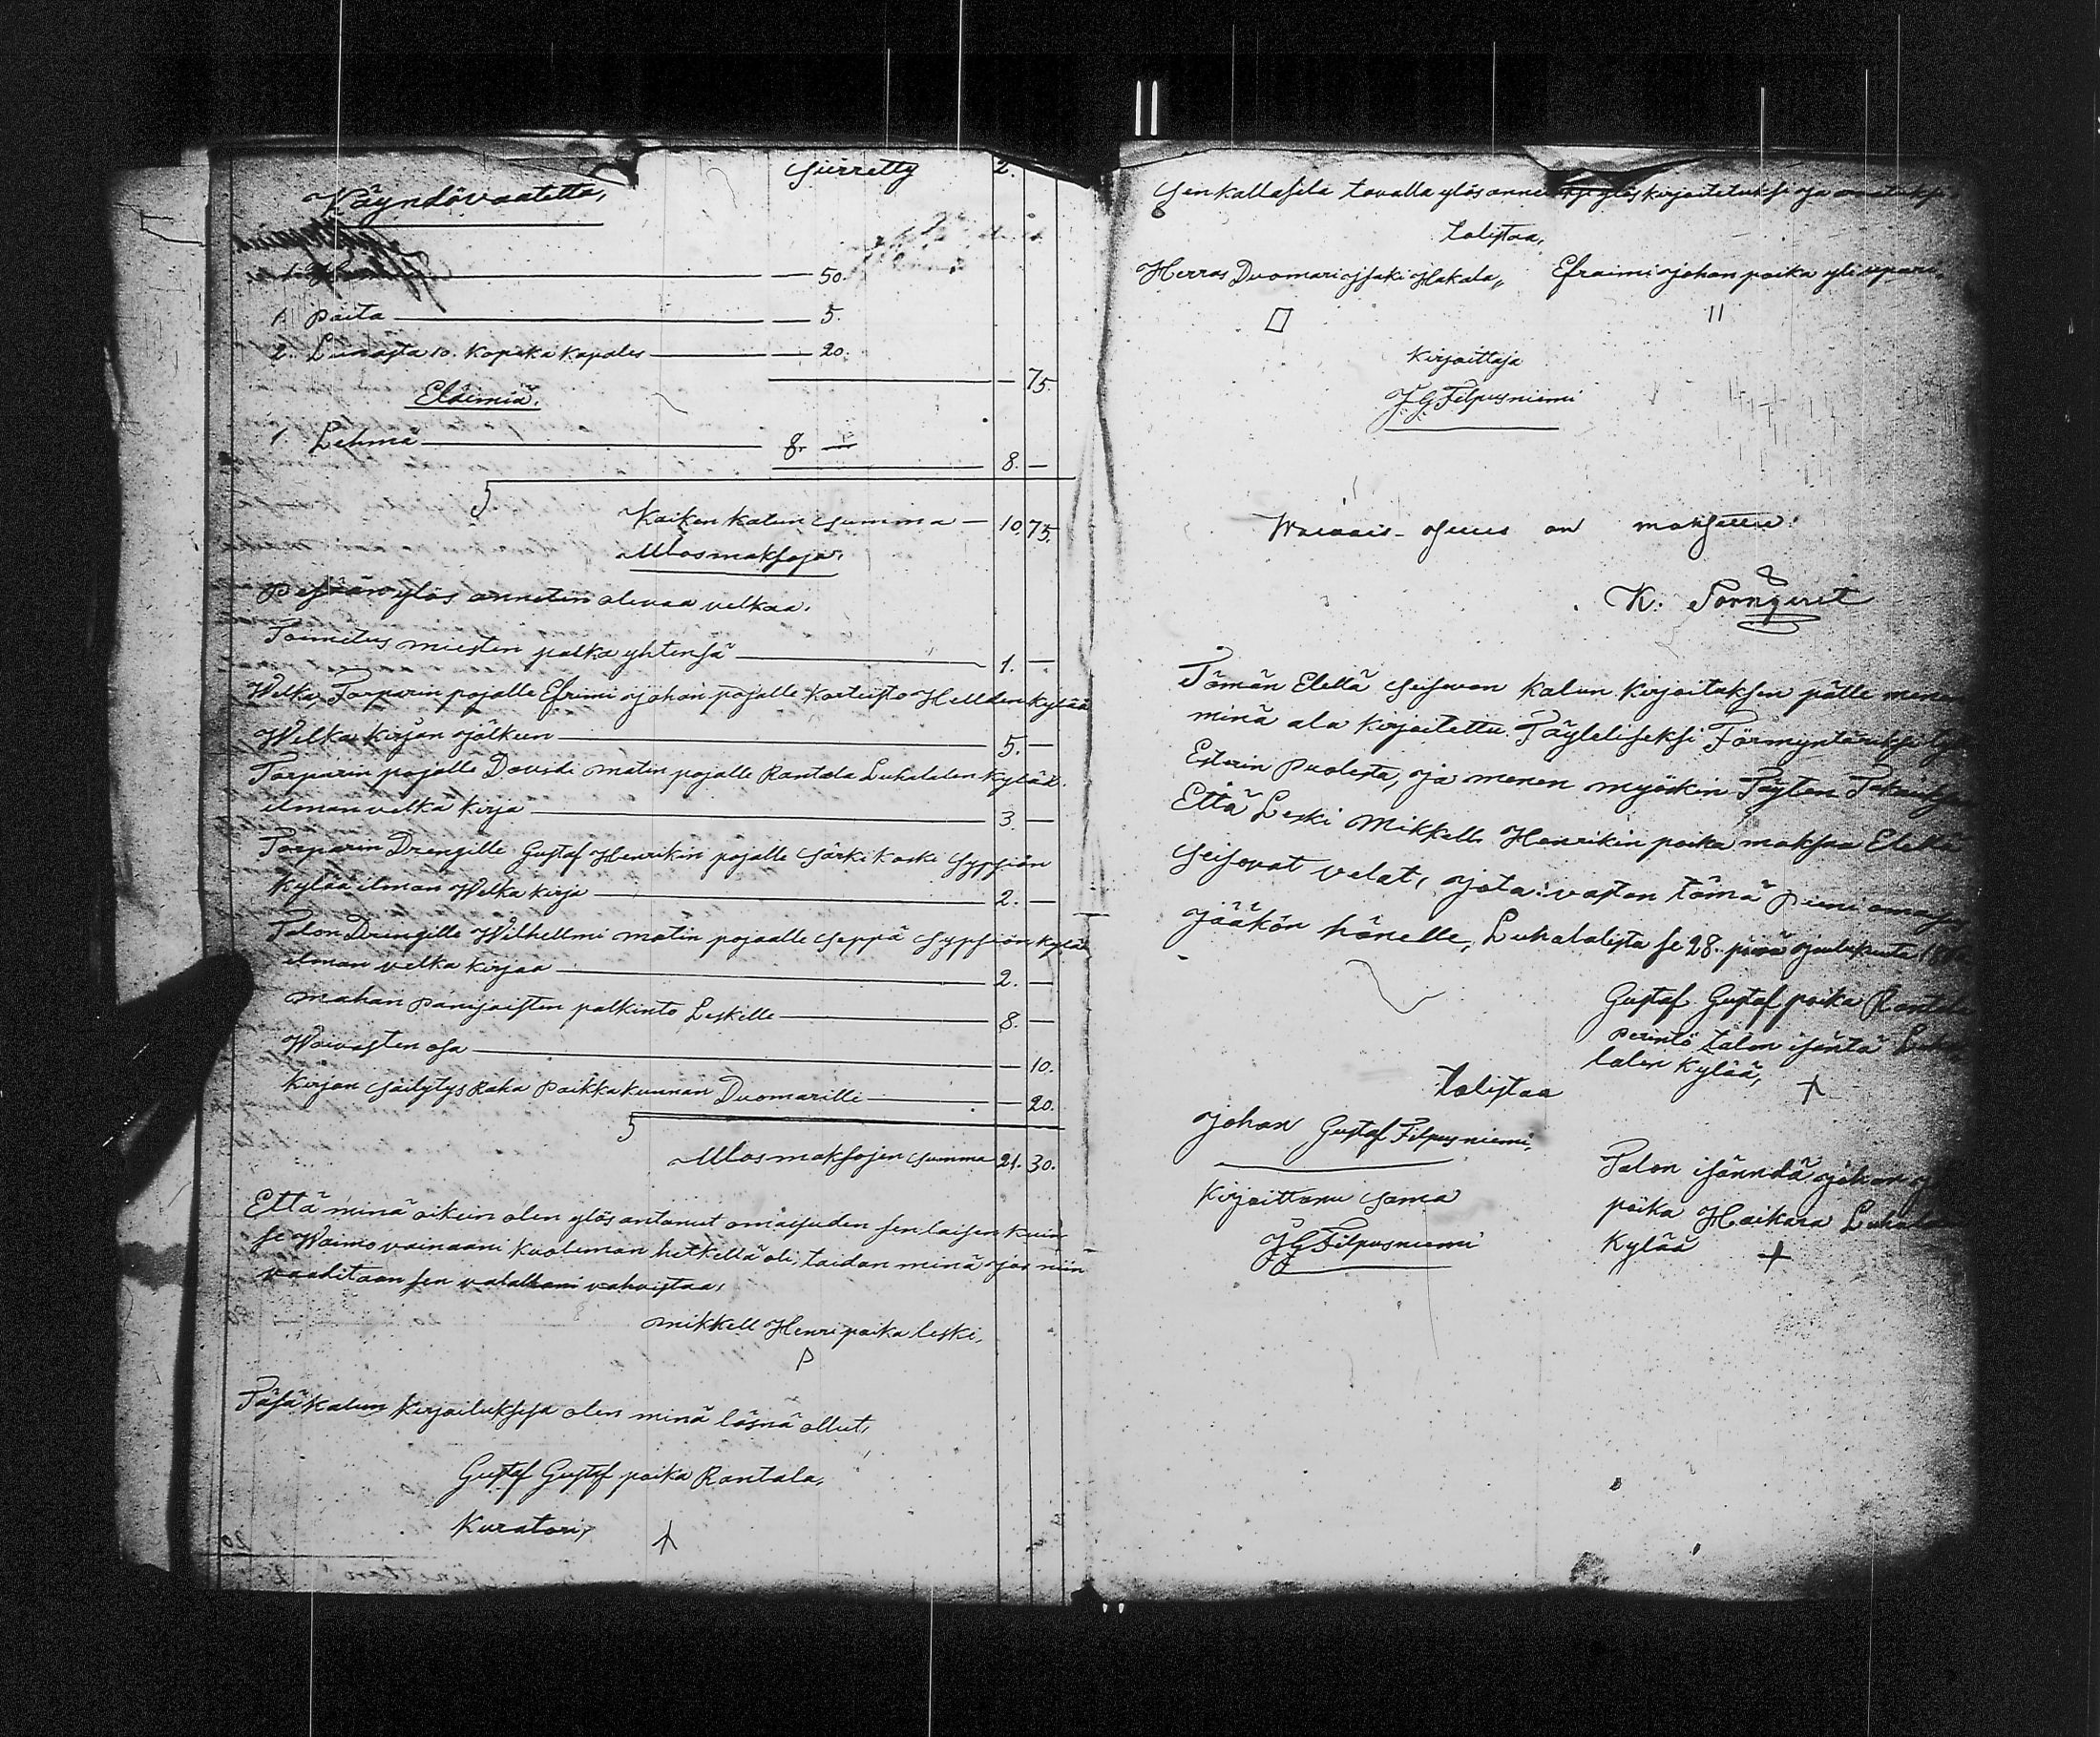 Siirretty 2.
Käyndövaatetta,
1. 50.
1. Paita 5.
2. Liinasta 10. Kopeka Kapales 20.
75.
Eläimiä.
1. Lehmä 8. —
8. —
Kaiken Kalun Summa — 10. 75.
Ulosmaksoja,
Pesään ylös annetin olevaa velkaa.
Toimitus miesten palka yhtensä 1. —
Welka, Torparin pojalle Efrimi Johan pojalle Korteisto Hellden Kylää
Welka Kirjan jälkeen 5. —
Torparin pojalle Davidi Matin pojalle Rantala Luhalalen Kylää.
ilman velka kirja 3. —
Torparin Drengille Gustaf Henrikin pojalle Särkikoski Sypsiön
Kylää ilman Welka kirja 2. —
Talon Drengille Wilhellmi Matin pojaalle Seppä Sypsiön Kylää
ilman velka kirjaa 2. —
Mahan Panijaisten palkinto Leskille 8. —
Waivasten osa — 10.
Kirjan Säilytys Raha Paikkakunnan Duomarille — 20.
Ulos maksojen Summa 21. 30.
Että minä oikein olen ylös antanut omaisuden sen laisen kuin
se Waimo vainaani kuoleman hetkellä oli, taidan minä jos niin
vaaditaan sen valallani vahvistaa,
Mikkell Henri poika leski,
P
Täsä Kalun Kirjoituksesa olen minä läsnä ollut,
Gustaf Gustaf poika Rantala,
Kuratori,
Senkallasela tavalla ylös kirjoitetuksi ja
talistaa,
Herras Duomari Isaki Hakala,, Efraimi Johan poika
11
Kirjoittaja
J. G. Filpusniemi
Waivais-osuus on maksettu.
K. Törnqvist
Tämän Elellä Seisovan Kalun Kirjoituksen pälle menen
minä ala kirjoitettu. Täyteliseksi Förmyntäriksi
Esterin Puolesta, ja menen myöskin Täyten
Että Leski Mikkell Henrikin poika maksaa Elellä
Seisovat velat, jota vastan tämä Pieni
jääkön hänelle, Luhalalista se 28. päivä
Gustaf Gustaf poika Rantala
Perintö talon isäntä
lalen Kylää,
talistaa
Johan Gustaf Filpusniemi,
Kirjoittanu Sama
J G Filpusniemi
Talon isänndä Johan
poika Haikara
Kylää